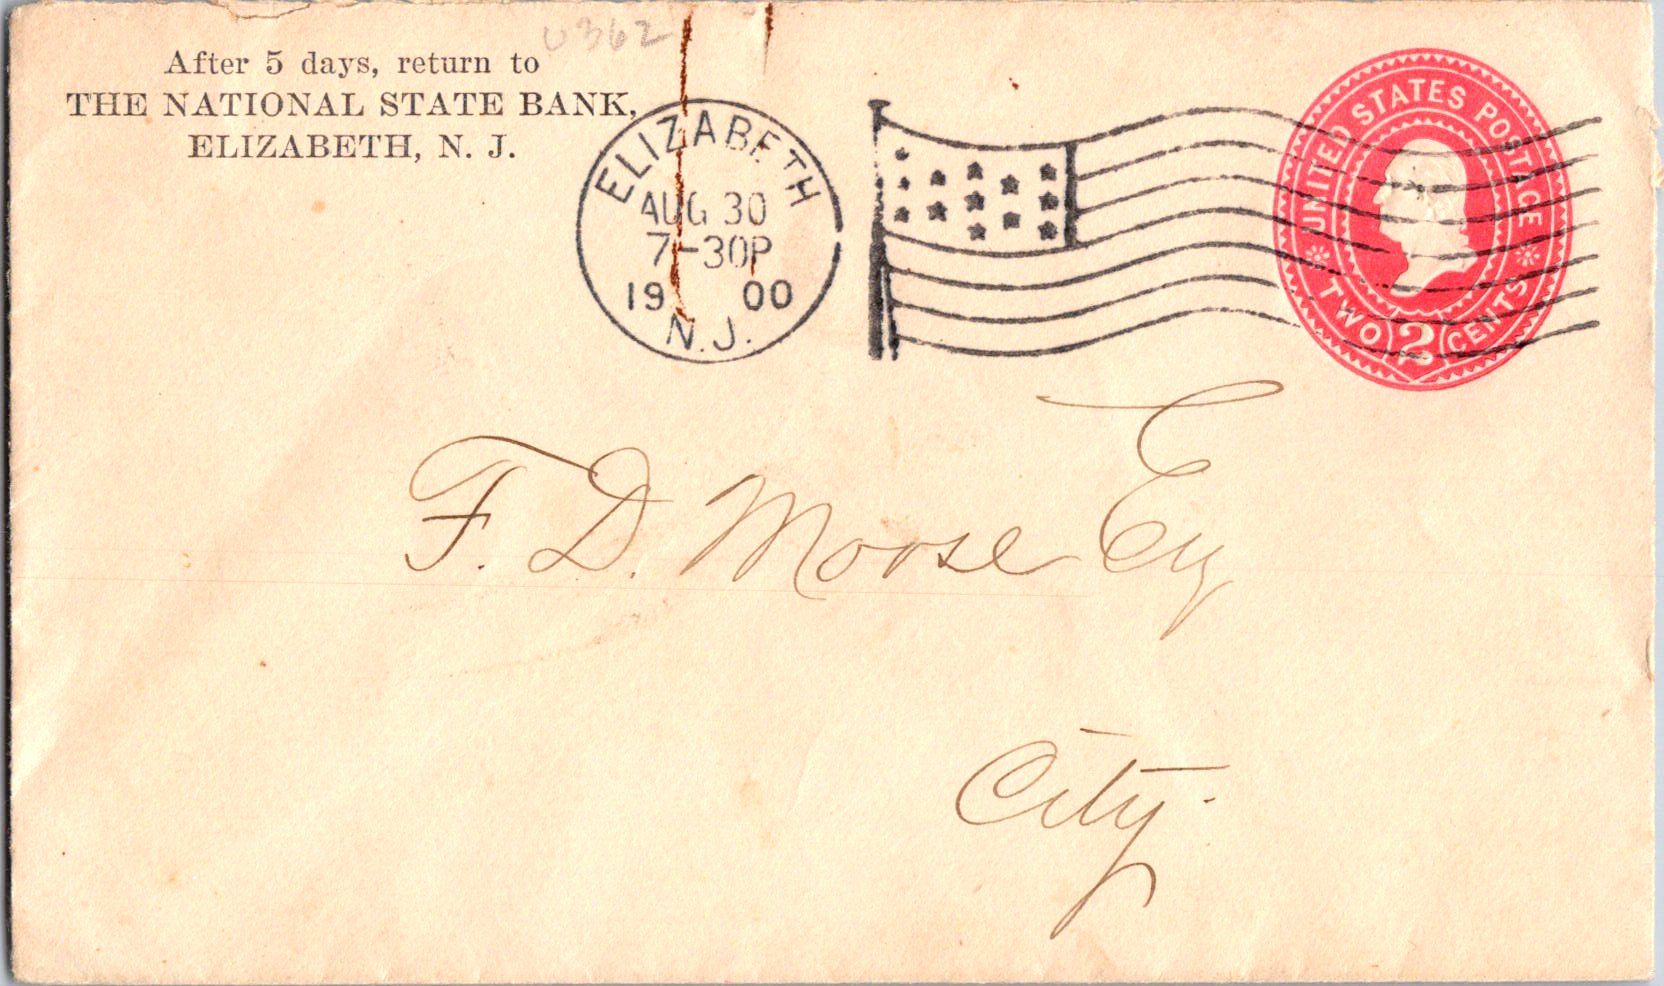 U362
After 5 days, return to
THE NATIONAL STATE BANK,
ELIZABETH, N. J.
ELIZABETH
AUG 30
7-30P
19 00
N.J.
UNITED STATES POSTAGE
TWO 2 CENTS
F. D. Moose Esq
City.